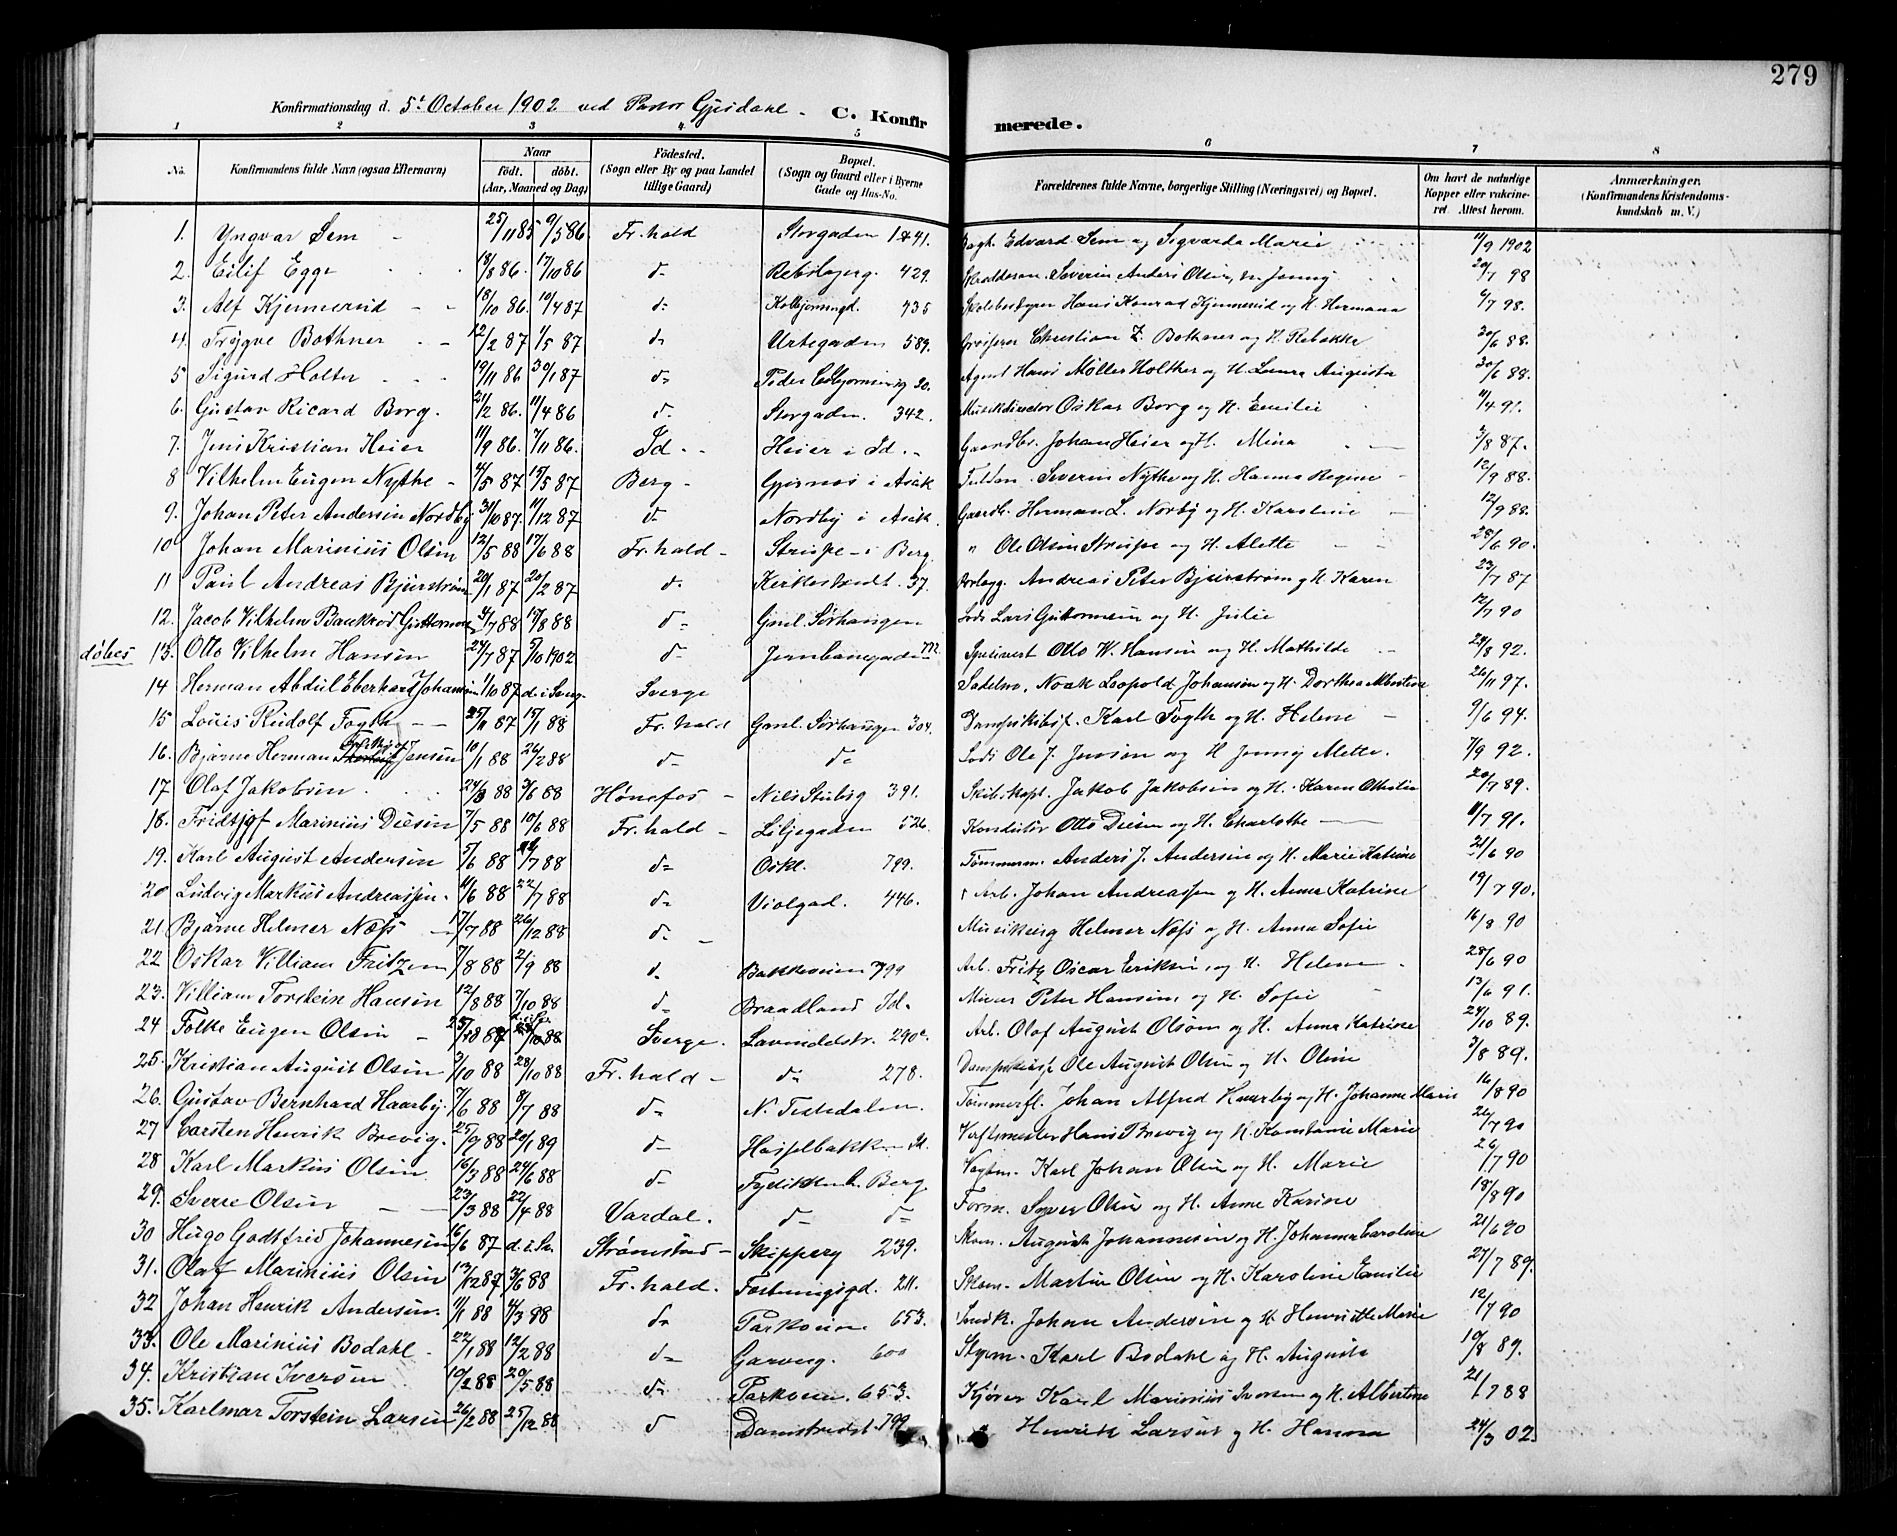 279
Konfirmationsdag d. 5t October 1902 ved Pastor Gjesdahl. C. Konfirmerede.
1 2 3 4 5 6 7 8
No. Konfirmandens fulde Navn (ogsaa Efternavn) Naar Født. døbt. (Aar, Maaned og Dag) Fødested. (Sogn eller By og paa Landet tillige Gaard) Bopæl. (Sogn og Gaard eller i Byerne Gade og Hus-No. Forældrenes fulde Navne, borgerlige Stilling (Næringsvei) og Bopæl. Om havt de naturlige Kopper eller vakcineret. Attest herom. Anmærkninger. (Konfirmandens Kristendomskundskab m. V.)
1. Yngvar Sem 25/11 85 9/5 86. Fr.hald Storgaden 141. Edvard Sem og Sigvarda Marie 11/9 1902
2. Eilif Egge 18/8 86. 17/10 86 d. 429. Severin Anders Olsen, Jenny 20/7 98
3. Alf Kjennerud 18/10 86. 10/4 87 d. Kolbjørnsgd. 435 Hans Konrad Kjennerud og H. Hermana 6/7 98.
4. Trygve Bothner 12/2 87 1/5 87 d. Urtegaden 589. Christian Z. Bothner og H. Rebekka 30/6 88.
5 Sigurd Holter 19/11 86 30/1 87 d. Peder Colbjørnsensg 20. Agent Hans Möller Holther og H. Laura Augusta 30/6 88.
6. Gustav Ricard Borg. 21/2 86. 11/4 86 d. Storgaden. 342. Musikdirector Oskar Borg og H. Emilie 11/4 91.
7. Jens Kristian Heier 11/9 86. 7/11 86. Id. Heier i Id. Gaardbr. Johan Heier og H. Mina 3/8 87.
8 Vilhelm Eugen Nythe 4/5 87 15/5 87 Berg Gjernes i Asak Severin Nythe og H. Hanna Regine 12/9 88.
9. Johan Peter Andersen Nordby 31/10 87. 11/12 87 d. Nordby i Asak. Gaardb. Herman L. Norby og H. Karoline 12/9 88.
10 Johan Marinius Olsen 12/5 88 17/6 88 Fr.hald Strupe i Berg " Ole Olsen Strupe og H. Alette 28/6 90.
11 Paul Andreas Bjurstrøm 20/1 87 20/2 87 d. Kirkestrædt. 37. Andreas Peter Bjurstrøm og H. Karen 23/7 87
12. Jacob Vilhelm Baukrød Guttormsen /7 88 19/8 88 d. Gml. Sørhaugen Lods Lars Guttormsen og H. Julie 12/7 90
døbes 13. Otto Vilhelm Hansen 24/7 87 5/10 1902 d. Jernbanegaden 772. Otto W. Hansen og H. Mathilde 29/8 92.
14 Herman Abdul Eberhard Johansen 1/10 87 d. i Sverg. Sverge Sadelm. Noak Leopold Johansen og H. Dorthea Albertine 26/11 97.
15 Louis Rudolf Fogth 25/11 87 15/1 88 Fr.hald Gml. Sørhaugen 304. Karl Fogth og H. Helene 9/6 94.
16. Bjarne Herman Jensen 10/1 88 26/2 88 d. d. Lods Ole J. Jensen og H Jenny Mette. 7/9 92.
17 Olaf Jakobsen. 24/3 88 3/6 88 Hønefos Nils Stubsg 391. Skibskapt. Jakob Jakobsen og H. Karen Othilie 20/7 89.
18. Fridtjof Marinius Diesen 7/5 88 10/6 88 Fr.hald Liljegaden 526. Konduktør Otto Diesen og H. Charlotte 11/7 91.
19. Karl August Andersen 5/6 88 /7 88 d. Oskl. 799. Tømmerm. Anders J. Andersen og H. Marie Katrine 21/6 90
20 Ludvig Markus Andreassen. 11/6 88 22/7 88 d. Violgad. 446. Arb. Johan Andreassen og H. Anna Katrine 19/7 90.
21 Bjarne Helmer Næss 17/7 88 26/12 88 d. Helmer Næss og H. Anna Sofie 16/8 90
22 Oskar Villiam Fritzen 7/8 88 2/9 88 d. Bakkeveien 799 Arb. Fritz Oscar Eriksen, og H. Helene 28/6 90
23. Villiam Torstein Hansen 12/8 88 7/10 88 d. Braadland Id. Murer Peter Hansen, og H. Sofie 13/6 91.
24 Folke Eugen Olsen Sverge. Lavendelstr. 290c. Arb. Olaf August Olsen og H. Anna Katrine 24/10 89.
25. Kristian August Olsen 2/10 88 28/10 88 Fr.hald d. 278. Ole August Olsen og H. Oline 3/8 89.
26. Gustav Bernhard Haarby. 7/6 88 8/7 88 d. N. Tistedalen. Tømmerfl. Johan Alfred Haarby og H. Johanne Marie 16/8 90
27 Carsten Henrik Brevig. 25/9 88 20/1 89 d. Hasselbakken Id. Verftsmester Hans Brevig og H. Konstanse Marie 26/7 90
28 Karl Markus Olsen. 16/3 88 24/6 88 d. Berg Vogtm. Karl Johan Olsen og H. Marie 26/7 90
29. Sverre Olsen 23/3 88 22/4 88 Vardal. d. d. Form. Syver Olsen og H. Anne Karine 18/8 90
30 Hugo Godtfrid Johannesen 16/6 87 d. i Sv. Strømstad Skipperg 239. Skom. August Johannesen og H. Johanne Caroline 21/6 90
31. Olaf Marinius Olsen 13/12 87 3/6 88 Fr.hald. Fæstningsgd. 211. Skom. Martin Olsen og H. Karoline Emilie 27/7 89.
32 Johan Henrik Andersen. 11/1 88 4/3 88 d. Parkveien 653. Snedk. Johan Andersen og H Henriette Marie 12/7 90
33. Ole Marinius Bodahl. 22/1 88 12/2 88 d. Garverg. 600 Karl Bodahl og H. Augusta 10/8 89.
34. Kristian Iversen 19/2 88 20/5 88 d. Parkveien 653. Kjører Karl Marinius Iversen og H. Albertine 21/7 88
35. Karlmar Torstein Larsen 26/2 88 25/12 88 d Damstrædet 799 " Henrik Larsen og H. Hanna 24/3 02.